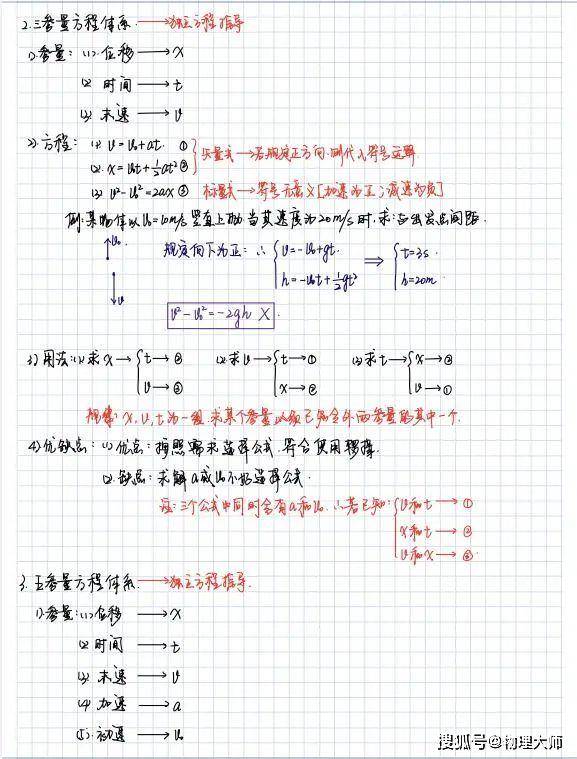 2. 三参量方程体系 → 独立方程指导
1) 参量: (1). 位移 → x
(2) 时间 → t
(3). 末速 → v
2). 方程: (1) v = v₀ + at. ①
(2). x = v₀t + ½at² ②
矢量式 → 若规定正方向, 则代入符号运算
(3) v² - v₀² = 2ax ③ 标量式 → 符号无意义 [加速为正; 减速为负]
例: 某物体以 v₀ = 10m/s 竖直上抛 当其速度为 20m/s 时, 求: 与出发点间距.
v₀
v
规定向下为正: ∴ { v = -v₀ + gt. ⇒ { t = 3s.
h = -v₀t + ½gt² h = 20m
v² - v₀² = -2gh X
3) 用法: (1) 求 x → { t → ② (2) 求 v → { t → ① (3) 求 t → { x → ②
v → ③ x → ③ v → ①
规律: x, v, t 为一组, 求某个参量必须已知另外两参量的其中一个.
4) 优缺点: (1) 优点: 按照需求选择公式, 符合使用逻辑.
(2). 缺点: 求解 a 或 v₀ 不好选择公式.
注: 三个公式中同时含有 a 和 v₀. ∴ 若已知: { v 和 t → ①
x 和 t → ②
v 和 x → ③
3. 五参量方程体系 → 独立方程指导.
1) 参量: (1). 位移 → x
(2) 时间 → t
(3). 末速 → v
(4) 加速 → a
(5). 初速 → v₀
搜狐号@物理大师